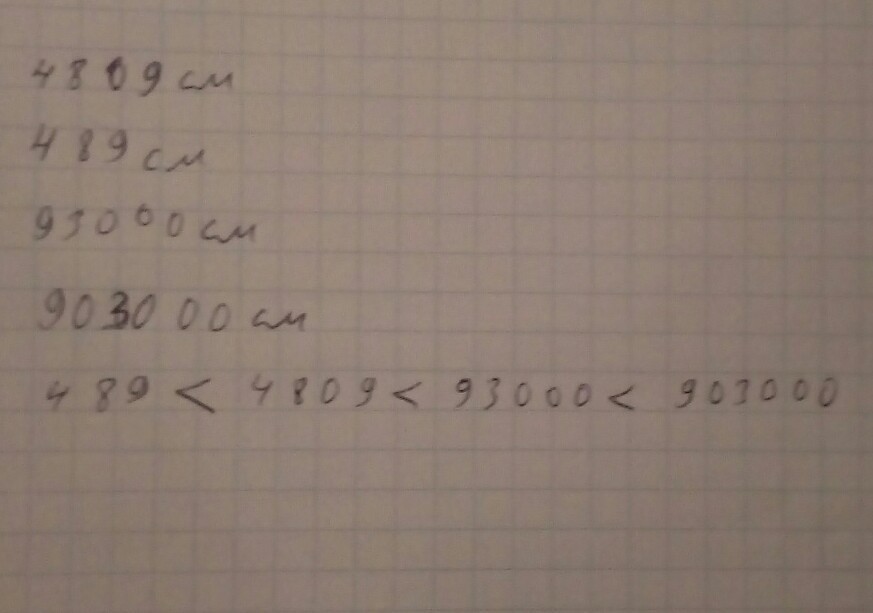 4809 см
489 см
93000 см
903000 см
489 < 4809 < 93000 < 903000